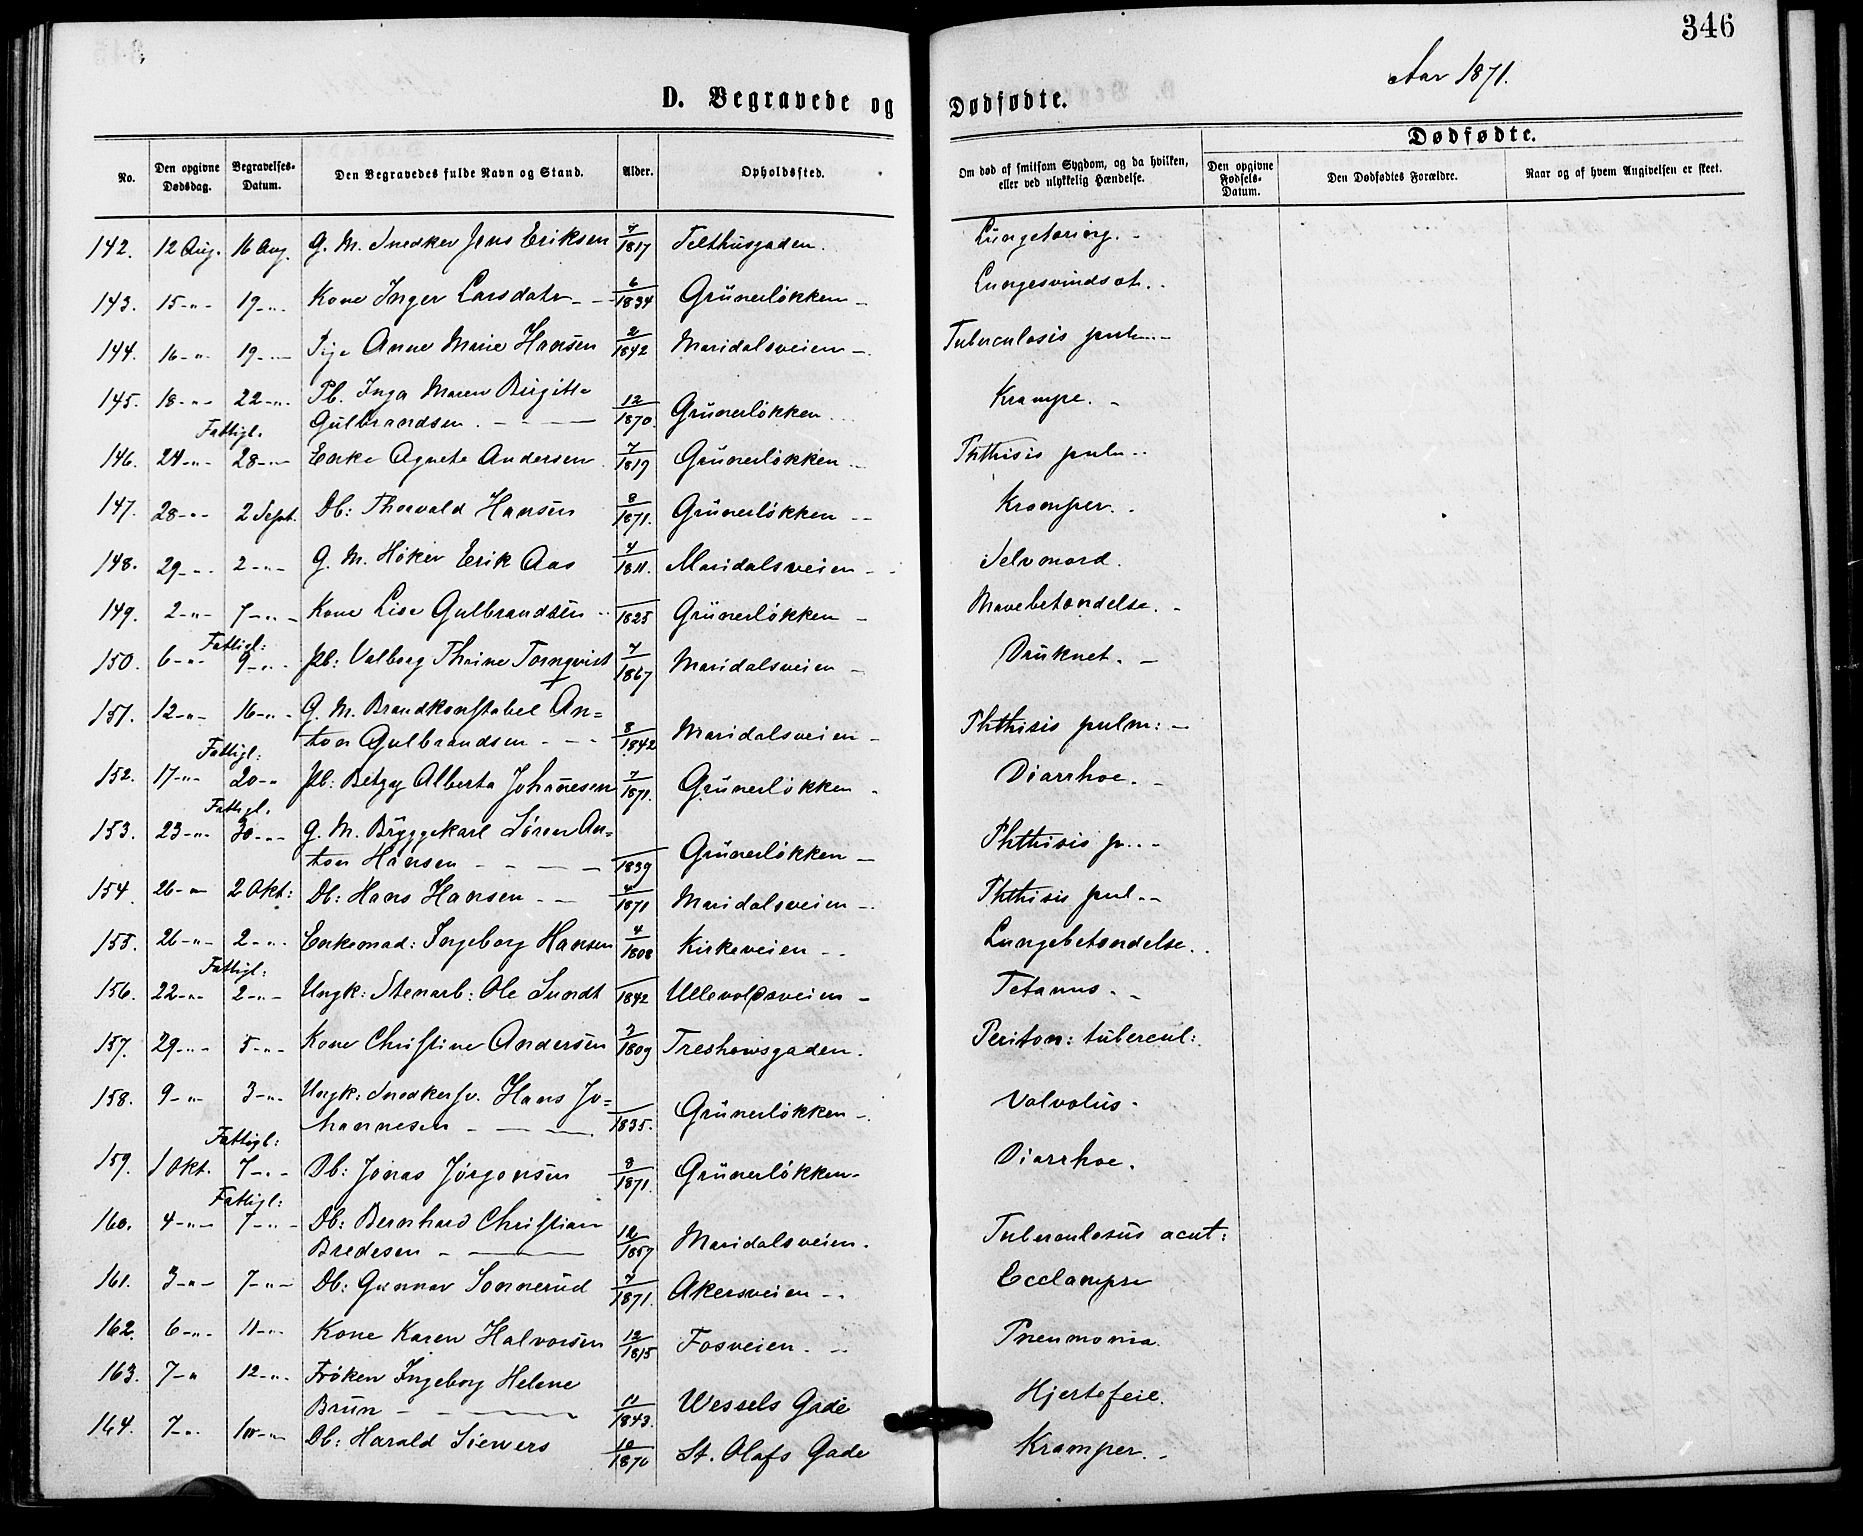 346
Aar 1871.
D. Begravede og Dødfødte.
Dødfødte.
No. Den opgivne Dødsdag. Begravelses-Datum. Den Begravedes fulde Navn og Stand. Alder. Opholdssted. Om død af smitsom Sygdom, og da hvilken, eller ved ulykkelig Hændelse. Den opgivne Fødsels-Datum. Den Dødfødtes Forældre. Naar og af hvem Angivelsen er skeet.
142. 12 Aug. 16 Aug. G. M. Snedker Jens Eriksen 7/1817 Telthusgaden. Lungetæring. -
143. 15 -"- 19 -"- Kone Inger Larsdatr - - 6/1834 Grünerløkken - Lungesvindsot. -
144. 16 -"- 19 -"- Pige Anne Marie Hansen 2/1842 Maridalsveien - Tuberculosis pulm. -
145. 18 -"- 22 -"- Pb. Inga Maren Birgitte
Gulbrandsen. - - - 12/1870 Grünerløkken. Krampe. -
Fattigl.
146. 24 -"- 28 -"- Enke Agnete Andersen 7/1819 Grünerløkken - Phthisis pulm -
147. 28 -"- 2 Sept. Db: Thorvald Hansen 8/1871. Grünerløkken - - Kramper. -
148. 29 -"- 2 -"- G. M. Høker Erik Aas 4/1811. Maridalsveien - Selvmord.
149. 2 -"- 7 -"- Kone Lise Gulbrandsen - 1825 Grünerløkken - Mavebetændelse. -
Fattigl:
150. 6 -"- 9 -"- Pb: Valborg Thrine Tornqvist 7/1867 Maridalsveien - Druknet. -
151. 12 -"- 16 -"- G. M. Brandkonstabel An=
ton Gulbrandsen - - - 8/1842 Maridalsveien - Phthisis pulm: -
Fattigl:
152. 17 -"- 20 -"- Pb: Betzy Alberta Johannesen 7/1871. Grünerløkken - Diarrhoe. -
Fattigl.
153. 23 -"- 30 -"- G. M. Bryggekarl Søren An=
ton Hansen - - - 1839 Grünerløkken - Phthisis p. -
154. 26 -"- 2 Okt: Db: Hans Hansen - - 4/1871 Maridalsveien - Phthisis pul. -
155. 26 -"- 2 -"- Enkemad: Ingeborg Hansen 4/1808 Kirkeveien - - Lungebetændelse. -
Fattigl:
156. 22 -"- 2 -"- Ungk: Stenarb: Ole Sundt 1842 Ullevoldsveien - Tetanus. -
157. 29 -"- 5 -"- Kone Christine Andersen 3/1809 Treschowsgaden. Periton: tubercul:
158. 9 -"- 3 -"- Ungk: Snedkersv. Hans Jo=
hannesen - - - 1835. Grünerløkken - Volvolus -
Fattigl:
159. 1 Okt. 7 -"- Db: Jonas Jørgensen 8/1871. Grünerløkken - Diarrhoe.
Fattigl:
160. 4 -"- 7 -"- Db: Bernhard Christian
Bredesen - - 12/1857 Maridalsveien. Tuberculosus acut:
161. 3 -"- 7 -"- Db: Gunnar Sonnerud 7/1871. Akersveien - - Ecclampsi
162. 6 -"- 11 -"- Kone Karen Halvorsen 12/1815 Fosveien. - Pneumonia.
163. 7 -"- 12 -"- Frøken Ingeborg Helene
Brun - - - 11/1843. Wessels Gade Hjertefeil.
164. 7 -"- 10 -"- Db: Harald Siewers 10/1870 St. Olafs Gade Kramper. -